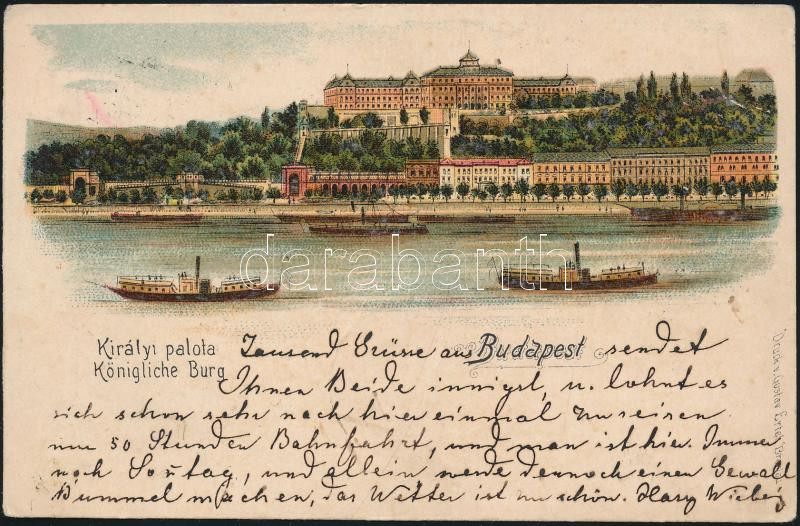 darabanth
Királyi palota
Königliche Burg
Tausend Grüsse aus Budapest sendet
Ihnen Beide innigst, u. lohnt es
sich schon sehr nach hier einmal zu reisen
nur 50 Stunden Bahnfahrt, und man ist hier. Immer
noch und allein werde dennoch einen
Bummel machen, das Wetter ist zu schön. Harry